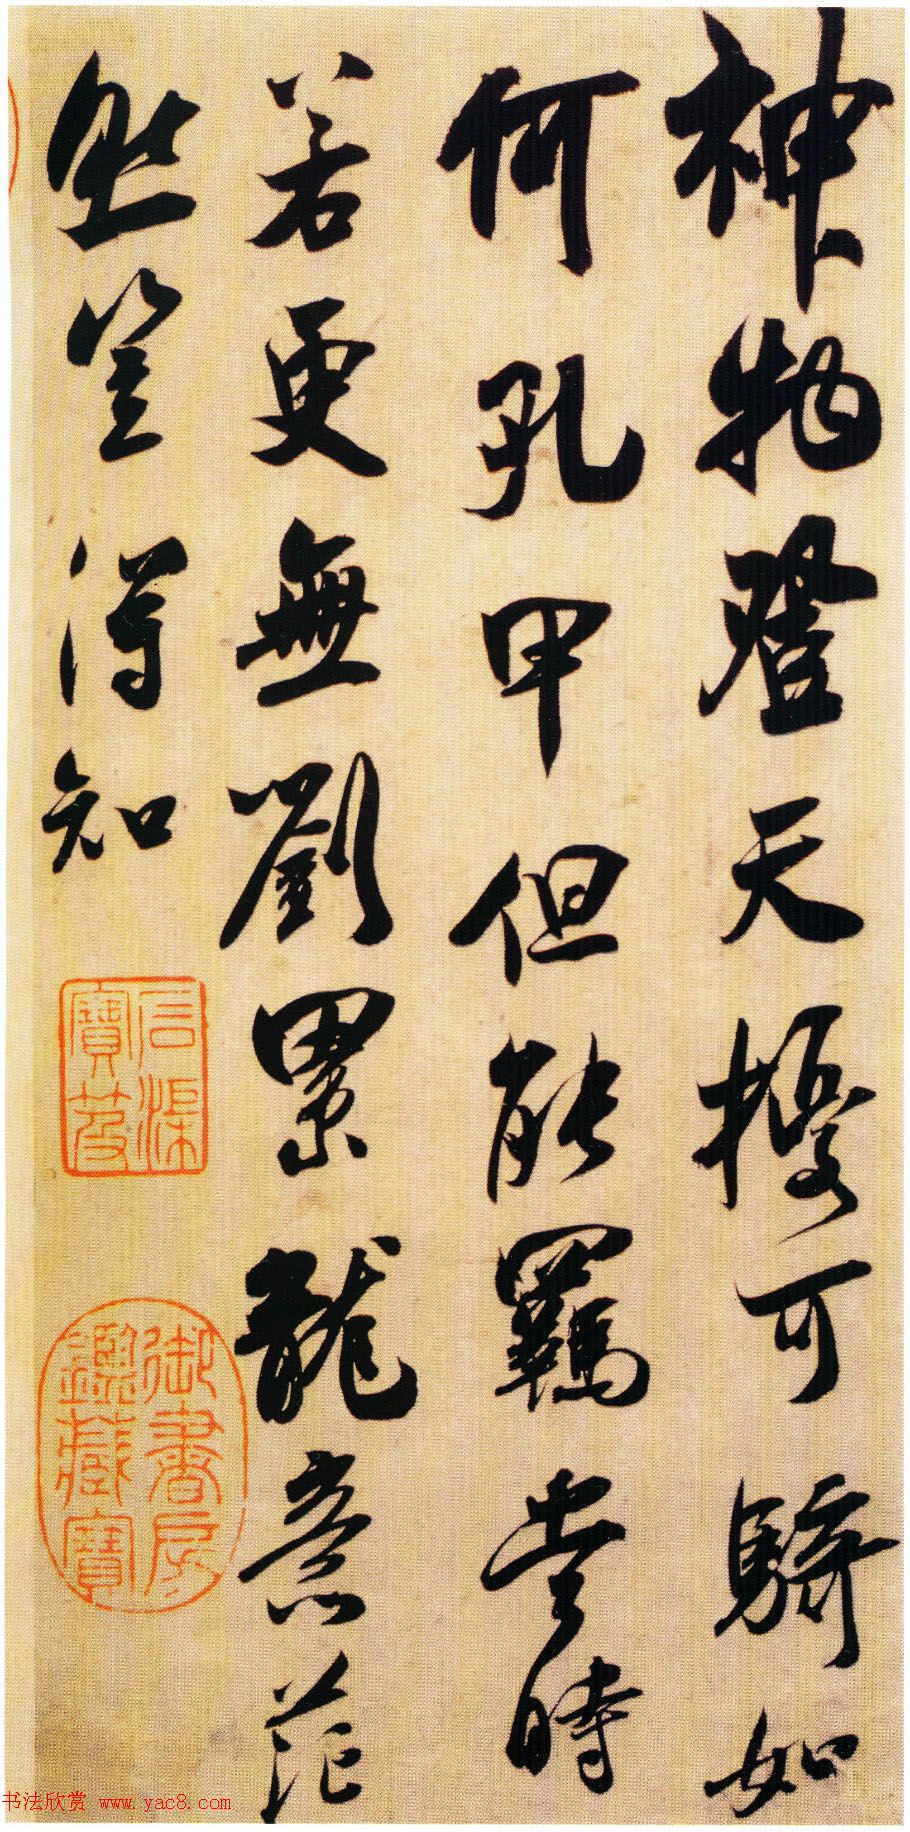 神物登天擾可騎如
何孔甲但能羈當時
若更無劉累龍意茫
然豈得知
石渠寶笈
御書房鑑藏寶
书法欣赏 www.yac8.com